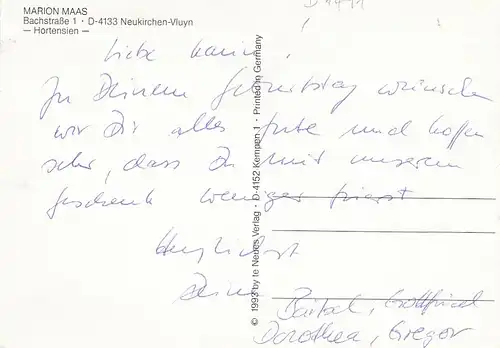 MARION MAAS
Bachstraße 1 · D-4133 Neukirchen-Vluyn
— Hortensien —
Liebe Karin!
Zu Deinem Geburtstag wünschen
wir Dir alles Gute und hoffen
sehr, dass Du mit unserem
Geschenk weniger frierst
Herzlichst
Deine
Bärbel, Gottfried
Dorothea, Gregor
© 1993 by te Neues Verlag · D-4152 Kempen 1 · Printed in Germany